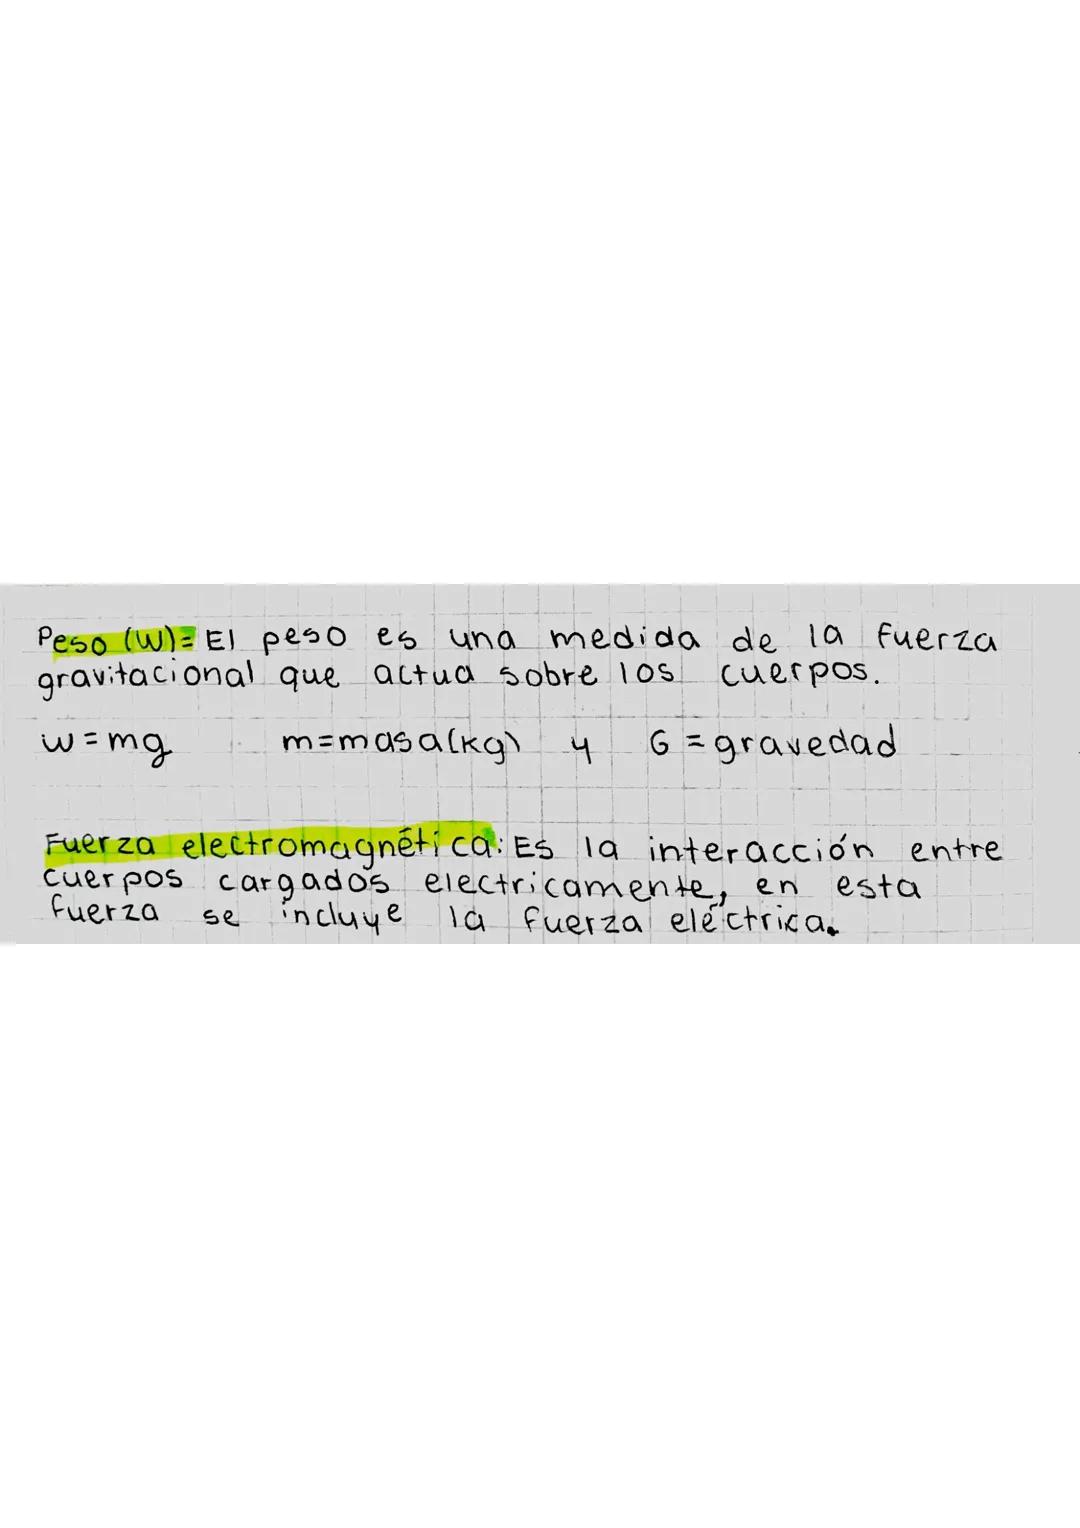 Peso (W)= El peso es una medida de la fuerza
gravitacional que actua sobre los cuerpos.
w=mg m=masa(kg) y G=gravedad
Fuerza electromagnética: Es la interacción entre
cuerpos cargados electricamente, en esta
fuerza se incluye la fuerza eléctrica.